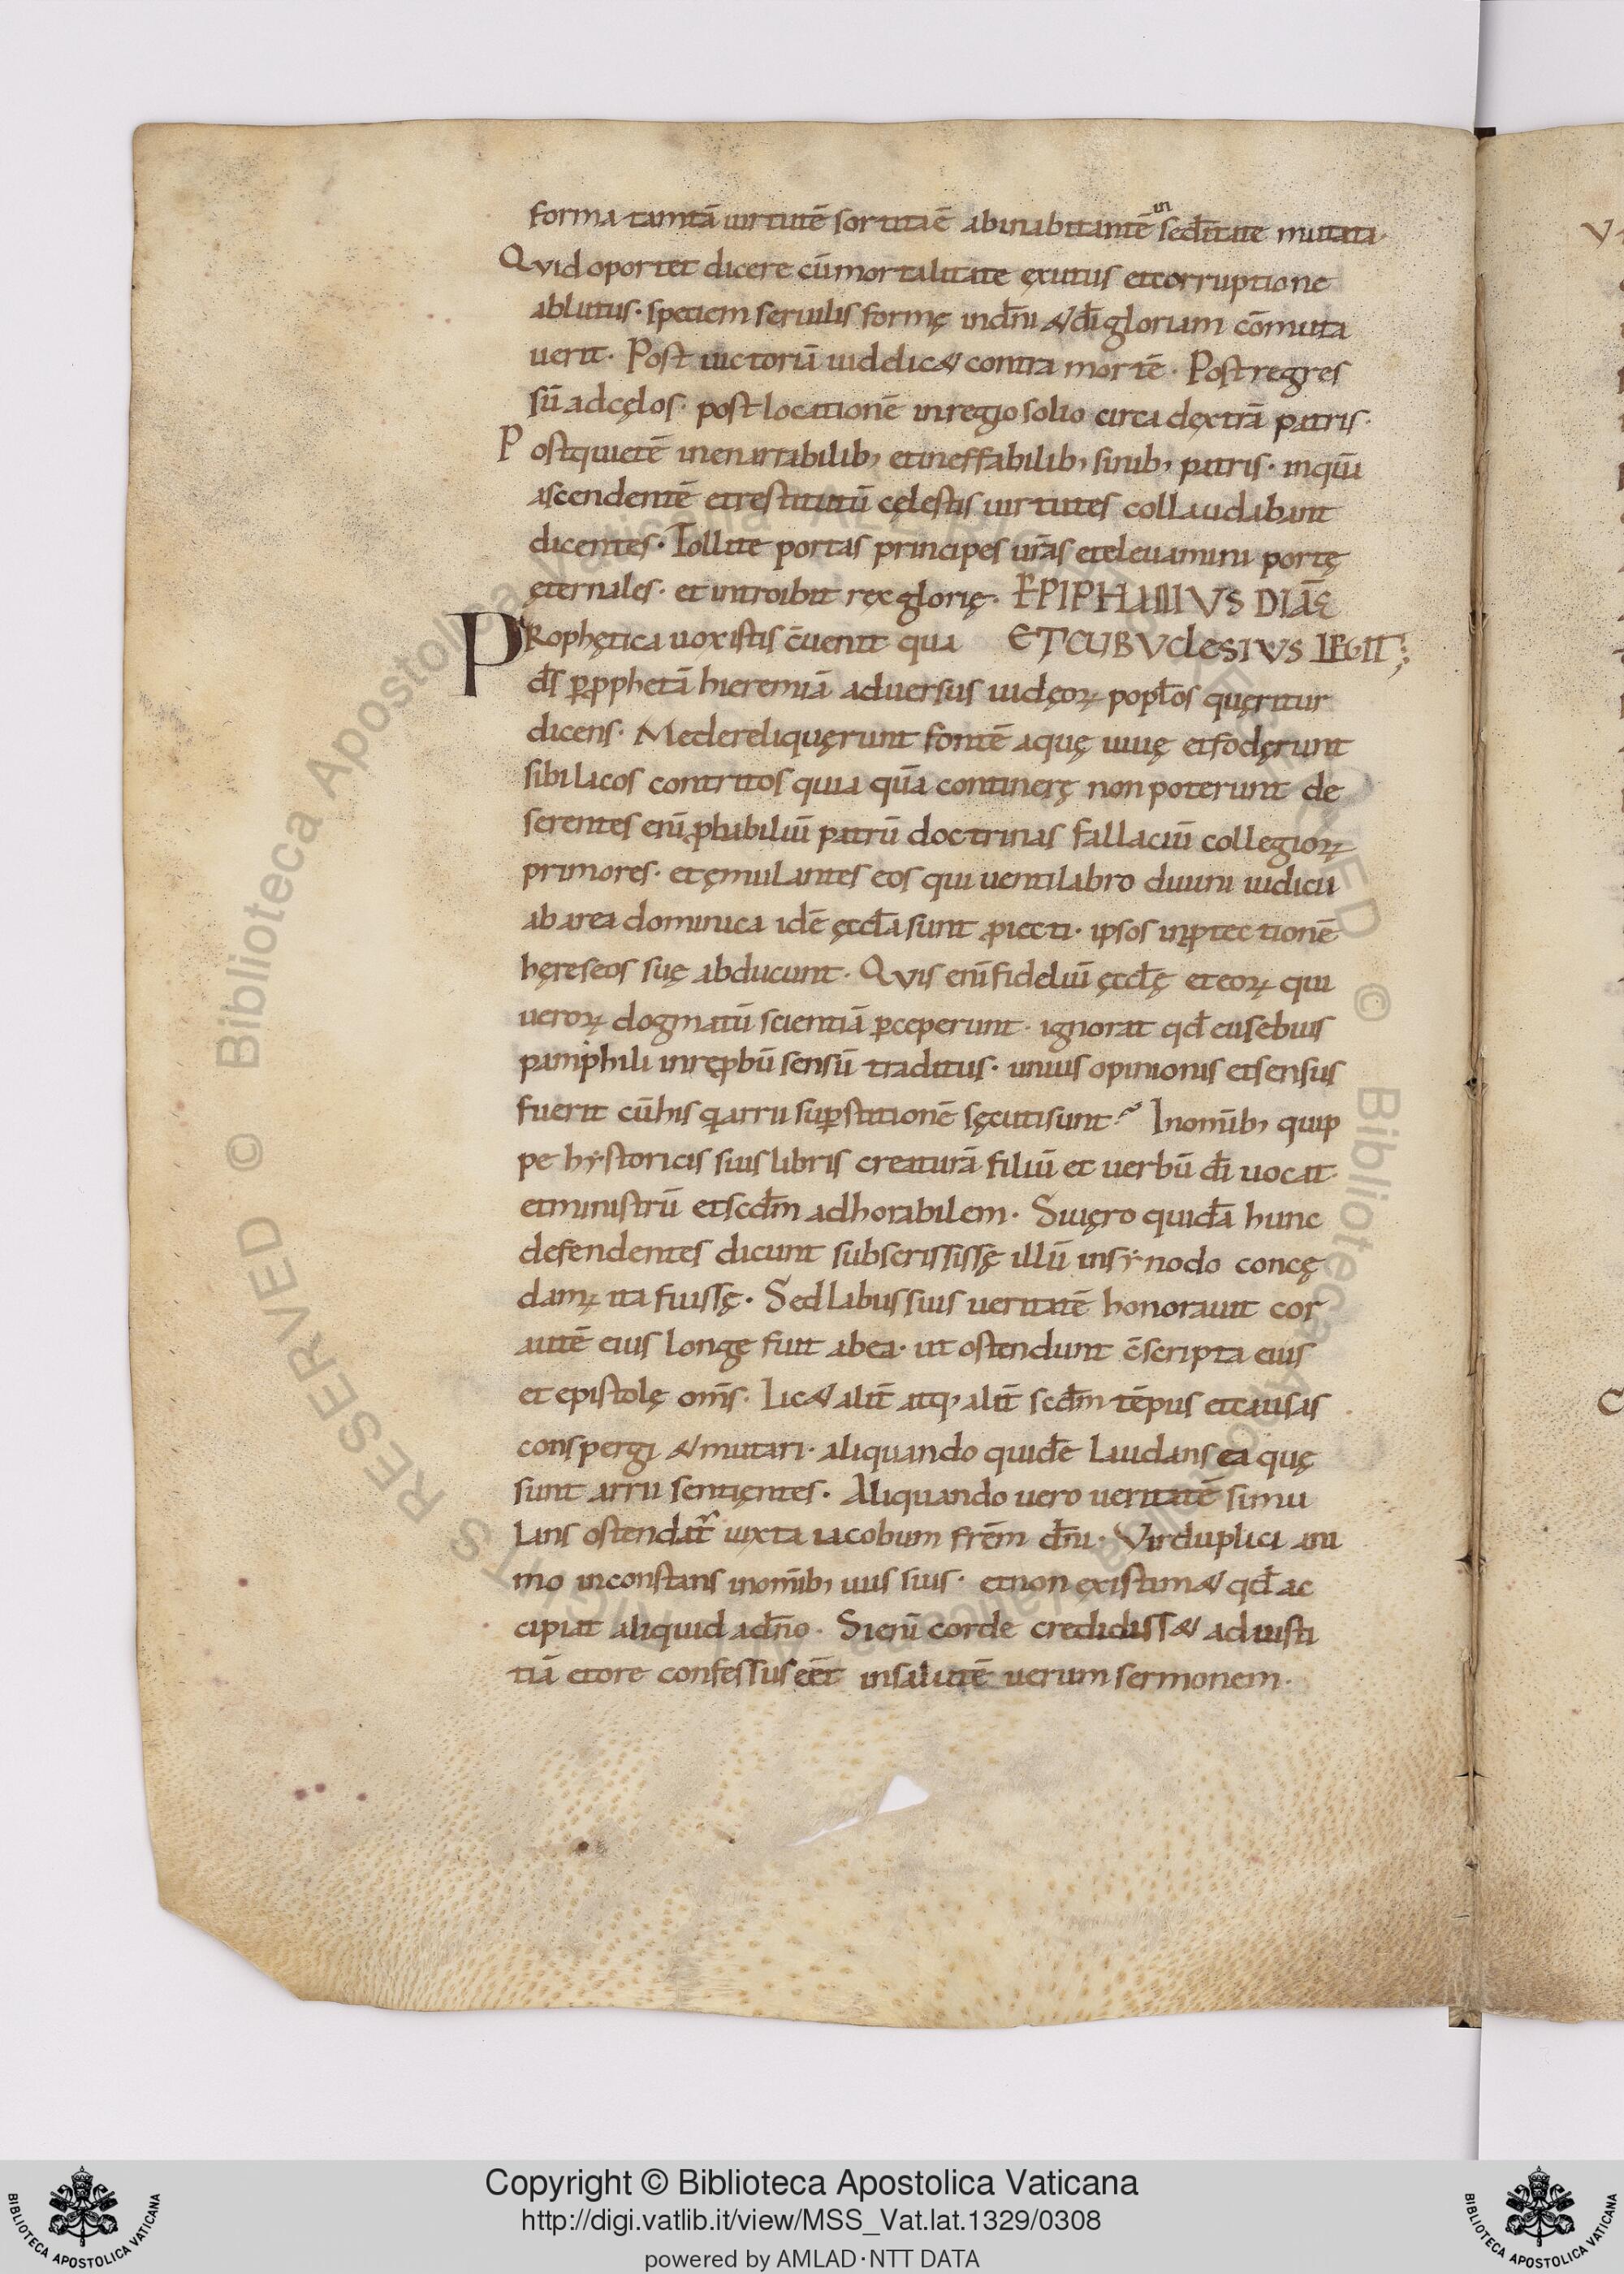 forma tamtā uirtutē sortita ē abinabitantē in se dītate mutata·
Qvid oportet dicere cū mortalitate exutus et corruptione
ablutus· spetiem seruilis formę in dn̄i & di̅ gloriam cōmuta
uerit· Post uictoriā uiddic& contra mortē· Post regres
sū ad cęlos· post locationē in regio solio circa dęxtrā patris·
Post quietē in enarrabilib; et ineffabilib; sinib; patris· in quā
ascendentē et restitutū cęlestis uirtutes collaudabant
dicentes· Tollite portas principes ur̄as et eleuamini portę
ęternales· et introibit rex glorię· EPIPHANIVS DIAC̄
PRophętica uox istis c̄uenit qua ET CUBVCLESIVS LEGIT;
d̄s ꝑ ꝓphetā hieremiā aduersus iudęoꝝ popl̄os quęritur
dicens· Me dereliquęrunt fontē aquę uiuę et fodęrunt
sibi lacos contritos quia qūa continerę non poterunt de
serentes enī ꝓbabiliū patrū doctrinas fallaciū collegioꝝ
primores· et ęmulantes eos qui uentilabro diuini iudicii
ab area dominica idē ęccl̄a sunt ꝓiecti· ipsos in ꝓtectionē
hęreseos suę abducunt· Qvis enī fideliū ęccl̄ę et eoꝝ qui
ueroꝝ dogmatū scientiā ꝑceperunt· ignorat qđ eusebius
pamphili in reꝓbū sensū traditus· unius opinionis et sensus
fuerit cū his qͥ arrii suꝑstitionē sęcuti sunt? In omīb; quip
pe hystoricis suis libris creaturā filiū et uerbū di̅ uocat·
et ministrū et scd̄m adhorabilem· Si uęro quidā hunc
defendentes dicunt subscrississę illū in synodo concę
damꝝ ita fuissę· Sed labus suis ueritatē honorauit cor
autē eius longe fuit ab ea· ut ostendunt c̄scripta eius
et epistolę om̄s· Lic& alit̄ atq; alit̄ scd̄m tēpus et causas
conspergi & mutari· aliquando quidē laudans ea quę
sunt arrii sentięntes· Aliquando uero ueritatē simu
lans ostendat̄ iuxta iacobum fr̄em dn̄i· Vir duplici ani
mo inconstans in omīb; uiis suis· et non existim& qđ ac
cipiat aliquid a dn̄o· Si enī corde credidiss& ad iusti
tiā et ore confessus eēt in salutē uerum sermonem·
Copyright © Biblioteca Apostolica Vaticana
http://digi.vatlib.it/view/MSS_Vat.lat.1329/0308
powered by AMLAD·NTT DATA
BIBLIOTECA APOSTOLICA VATICANA
BIBLIOTECA APOSTOLICA VATICANA